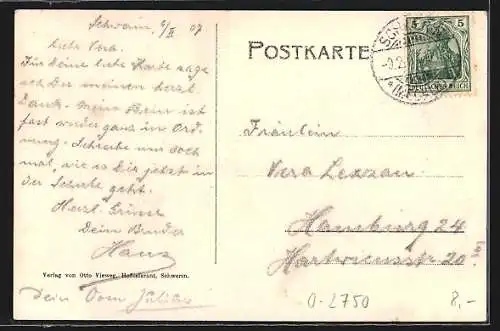 Schwerin 9/II 07
POSTKARTE
Liebe Vera.
Für Deine liebe Karte sage
ich Dir meinen herzl.
Dank. Mein Bein ist
fast wieder ganz in Ord-
nung. Schreibe nur doch
mal, wie es Dir jetzt in
der Schule geht.
Herzl. Grüsse
Dein Bruder
Hans
Verlag von Otto Vieweg, Hoflieferant, Schwerin.
Dein Onm Julius
5 5
DEUTSCHES REICH
Fräulein
Vera Lexzau
Hamburg 24
Hartwicusstr. 20
0-2750
8.-